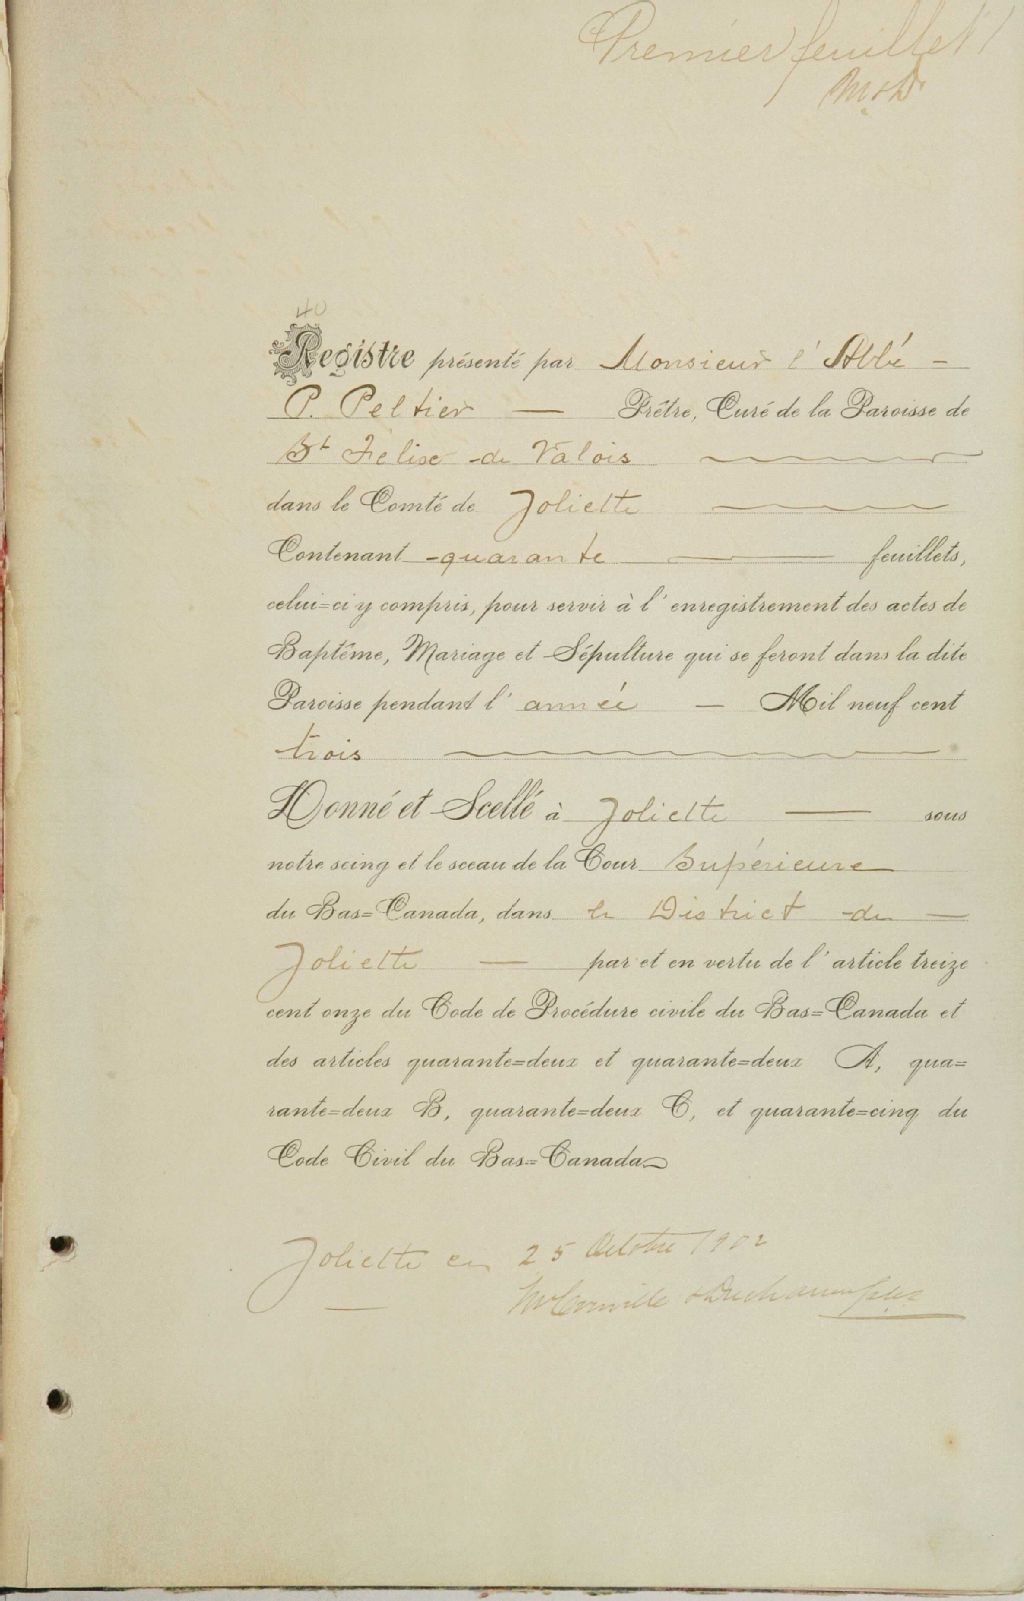 Premier feuillet
40
Registre présenté par Monsieur l'Abbé =
P. Peltier — Prêtre, Curé de la Paroisse de
St Félix de Valois
dans le Comté de Joliette
Contenant quarante — feuillets,
celui=ci y compris, pour servir à l'enregistrement des actes de
Baptême, Mariage et Sépulture qui se feront dans la dite
Paroisse pendant l'année — Mil neuf cent
trois
Donné et Scellé à Joliette — sous
notre seing et le sceau de la Cour Supérieure
du Bas=Canada, dans le District de —
Joliette — par et en vertu de l'article treize
cent onze du Code de Procédure civile du Bas=Canada et
des articles quarante=deux et quarante=deux A, qua=
rante=deux B, quarante=deux C, et quarante=cinq du
Code Civil du Bas=Canada
Joliette ce 25 Octobre 1902
McConville & Duchamp